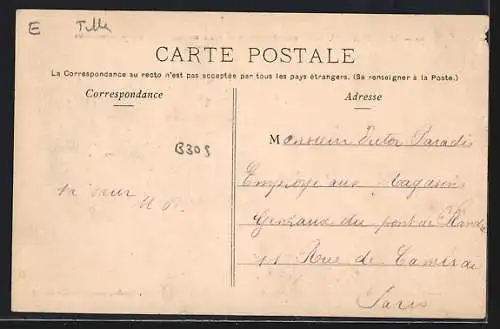 E Tille
CARTE POSTALE
La Correspondance au recto n'est pas acceptée par tous les pays étrangers. (Se renseigner à la Poste.)
Correspondance
Adresse
B305
Monsieur Victor Paradis
Employé aux Magasins
Généraux du pont de Flandre
11 Rue de Cambrai
Paris